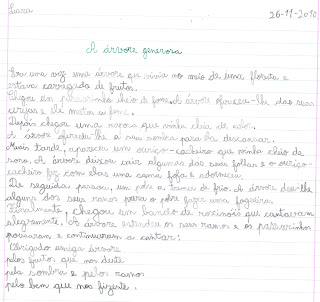 Lara
26-11-2010
A árvore generosa
Era uma vez uma árvore que vivia no meio de uma floresta e
estava carregada de frutos.
Chegou um passarinho cheio de fome. A árvore ofereceu-lhe das suas
cerejas e ele matou a fome.
Depois chegou uma raposa que vinha cheia de calor.
A árvore ofereceu-lhe a sua sombra para ela descansar.
Mais tarde, apareceu um ouriço-cacheiro que vinha cheio de
sono. A árvore deixou cair algumas das suas folhas e o ouriço-
cacheiro fez com elas uma cama fofa e adormeceu.
De seguida passou um pobre a tremer de frio. A árvore deu-lhe
alguns dos seus ramos para o pobre fazer uma fogueira.
Finalmente, chegou um bando de rouxinóis que cantavam
alegremente. A árvore estendeu os seus ramos e os passarinhos
pousaram e continuaram a cantar:
Obrigado amiga árvore
pelos frutos que nos deste
pela sombra e pelos ramos
pelo bem que nos fizeste.